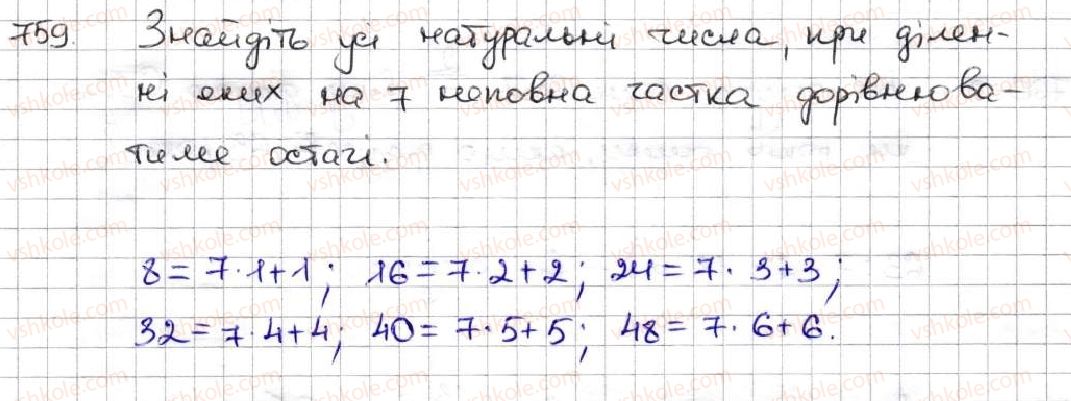 759. Знайдіть усі натуральні числа, при ділен-
ні яких на 7 неповна частка дорівнюва-
тиме остачі.
8 = 7·1+1; 16 = 7·2+2; 24 = 7·3+3;
32 = 7·4+4; 40 = 7·5+5; 48 = 7·6+6.